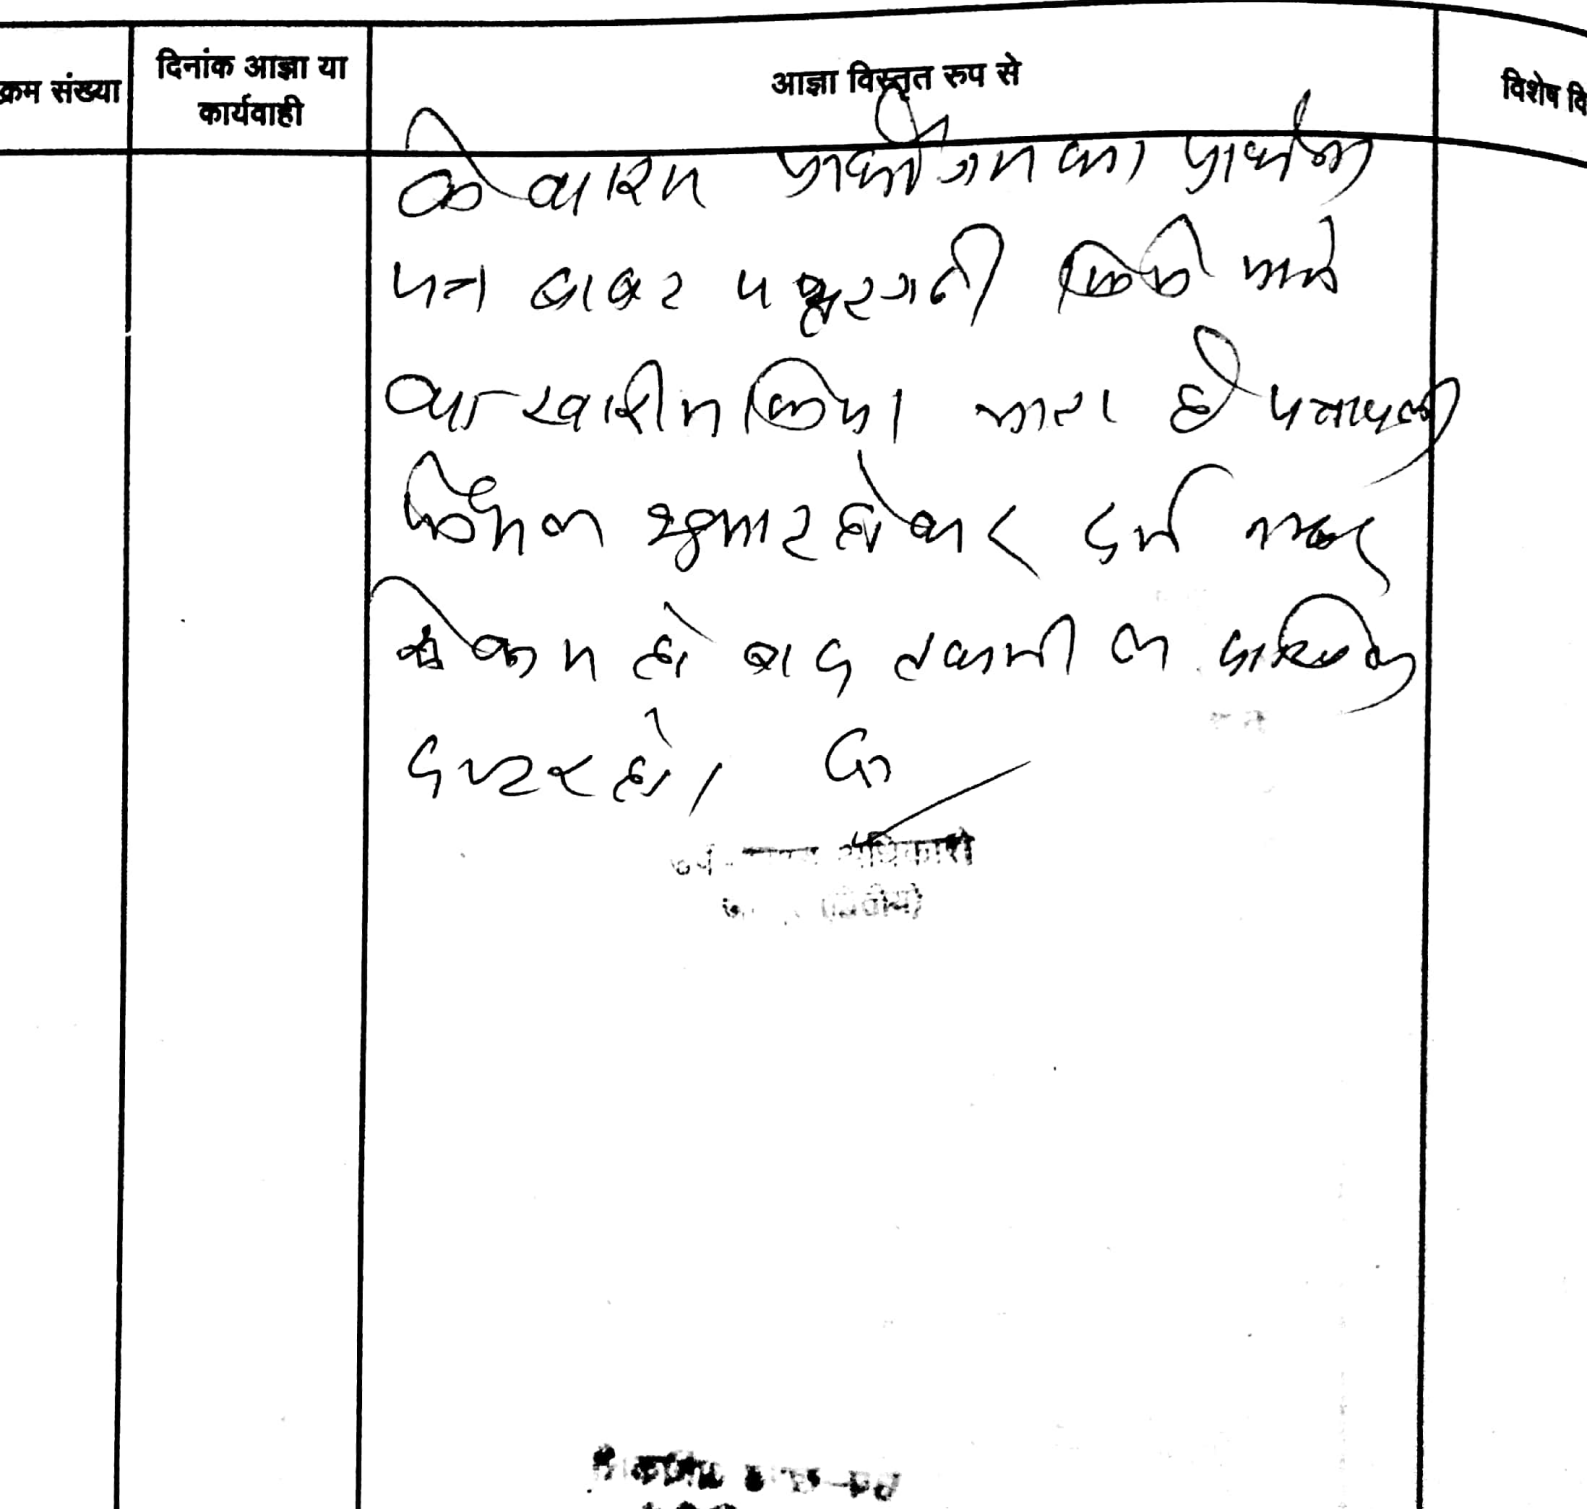 क्रम संख्या
दिनांक आज्ञा या
कार्यवाही
आज्ञा विस्तृत रुप से
विशेष वि
के कारण प्रार्थीगण का प्रार्थना
पत्र बाबत किये जाने
का खारीज किया जाता है पत्रावली
फैसल शुमार होकर दर्ज नम्बर
से कम हो बाद तकमील दाखिल
दफ्तर हो।
अधिकारी
(द्वितीय)